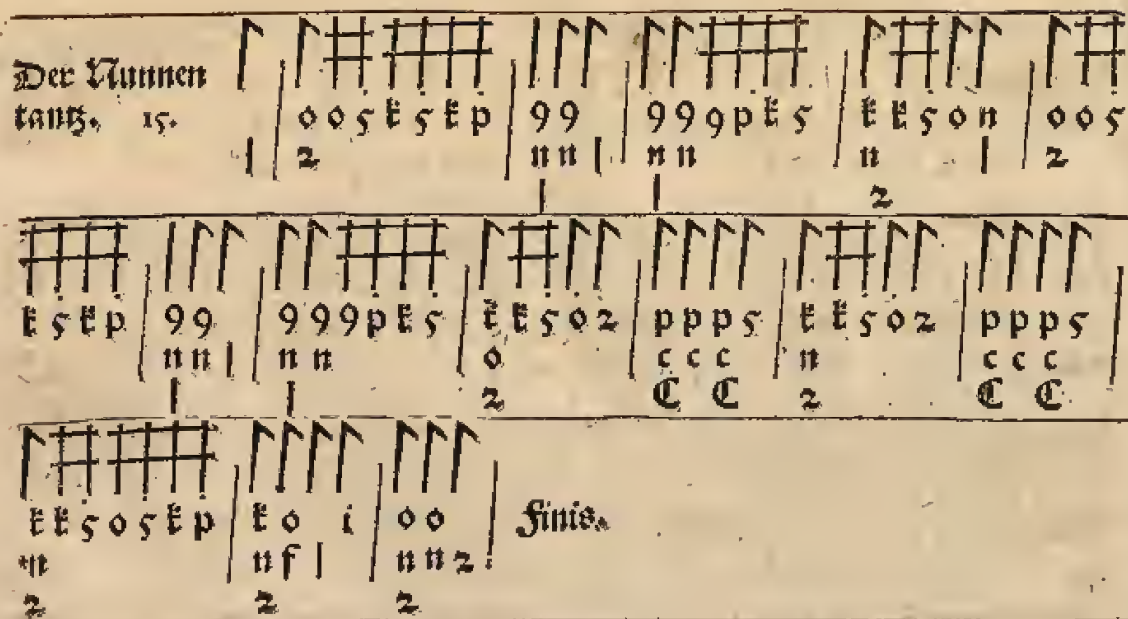 Der Nunnen
tantz. 15.
o o 5 k 5 k p 9 9 9 9 9 p k 5 k k 5 o n o o 5
2 n n n n n 2
2
k 5 k p 9 9 9 9 9 p k 5 k k 5 o 2 p p p 5 k k 5 o 2 p p p 5
n n n n o c c c n c c c
2 C C 2 C C
k k 5 o 5 k p k o i o o Finis.
n n f n n 2
2 2 2